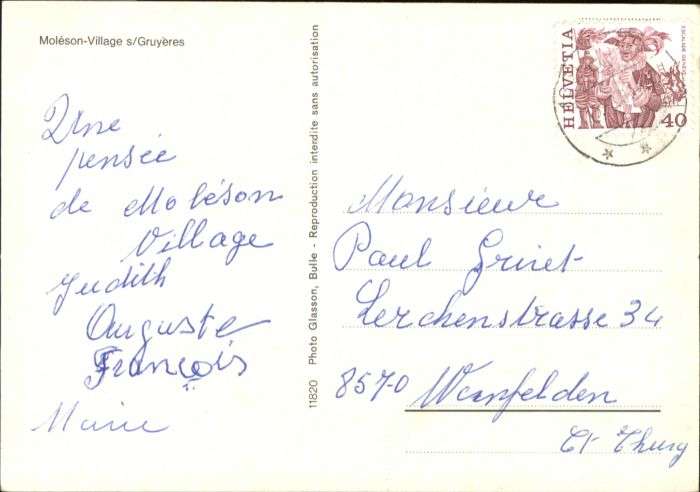 Moléson-Village s/Gruyères
Une
pensée
de Moléson
Village
Judith
Auguste
François
Marie
11820 Photo Glasson, Bulle - Reproduction interdite sans autorisation
HELVETIA
40
Monsieur
Paul Grivet
Lerchenstrasse 34
8570 Weinfelden
Ct Thurg